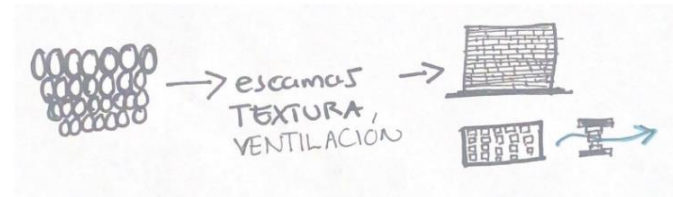 escamas
TEXTURA,
VENTILACIÓN